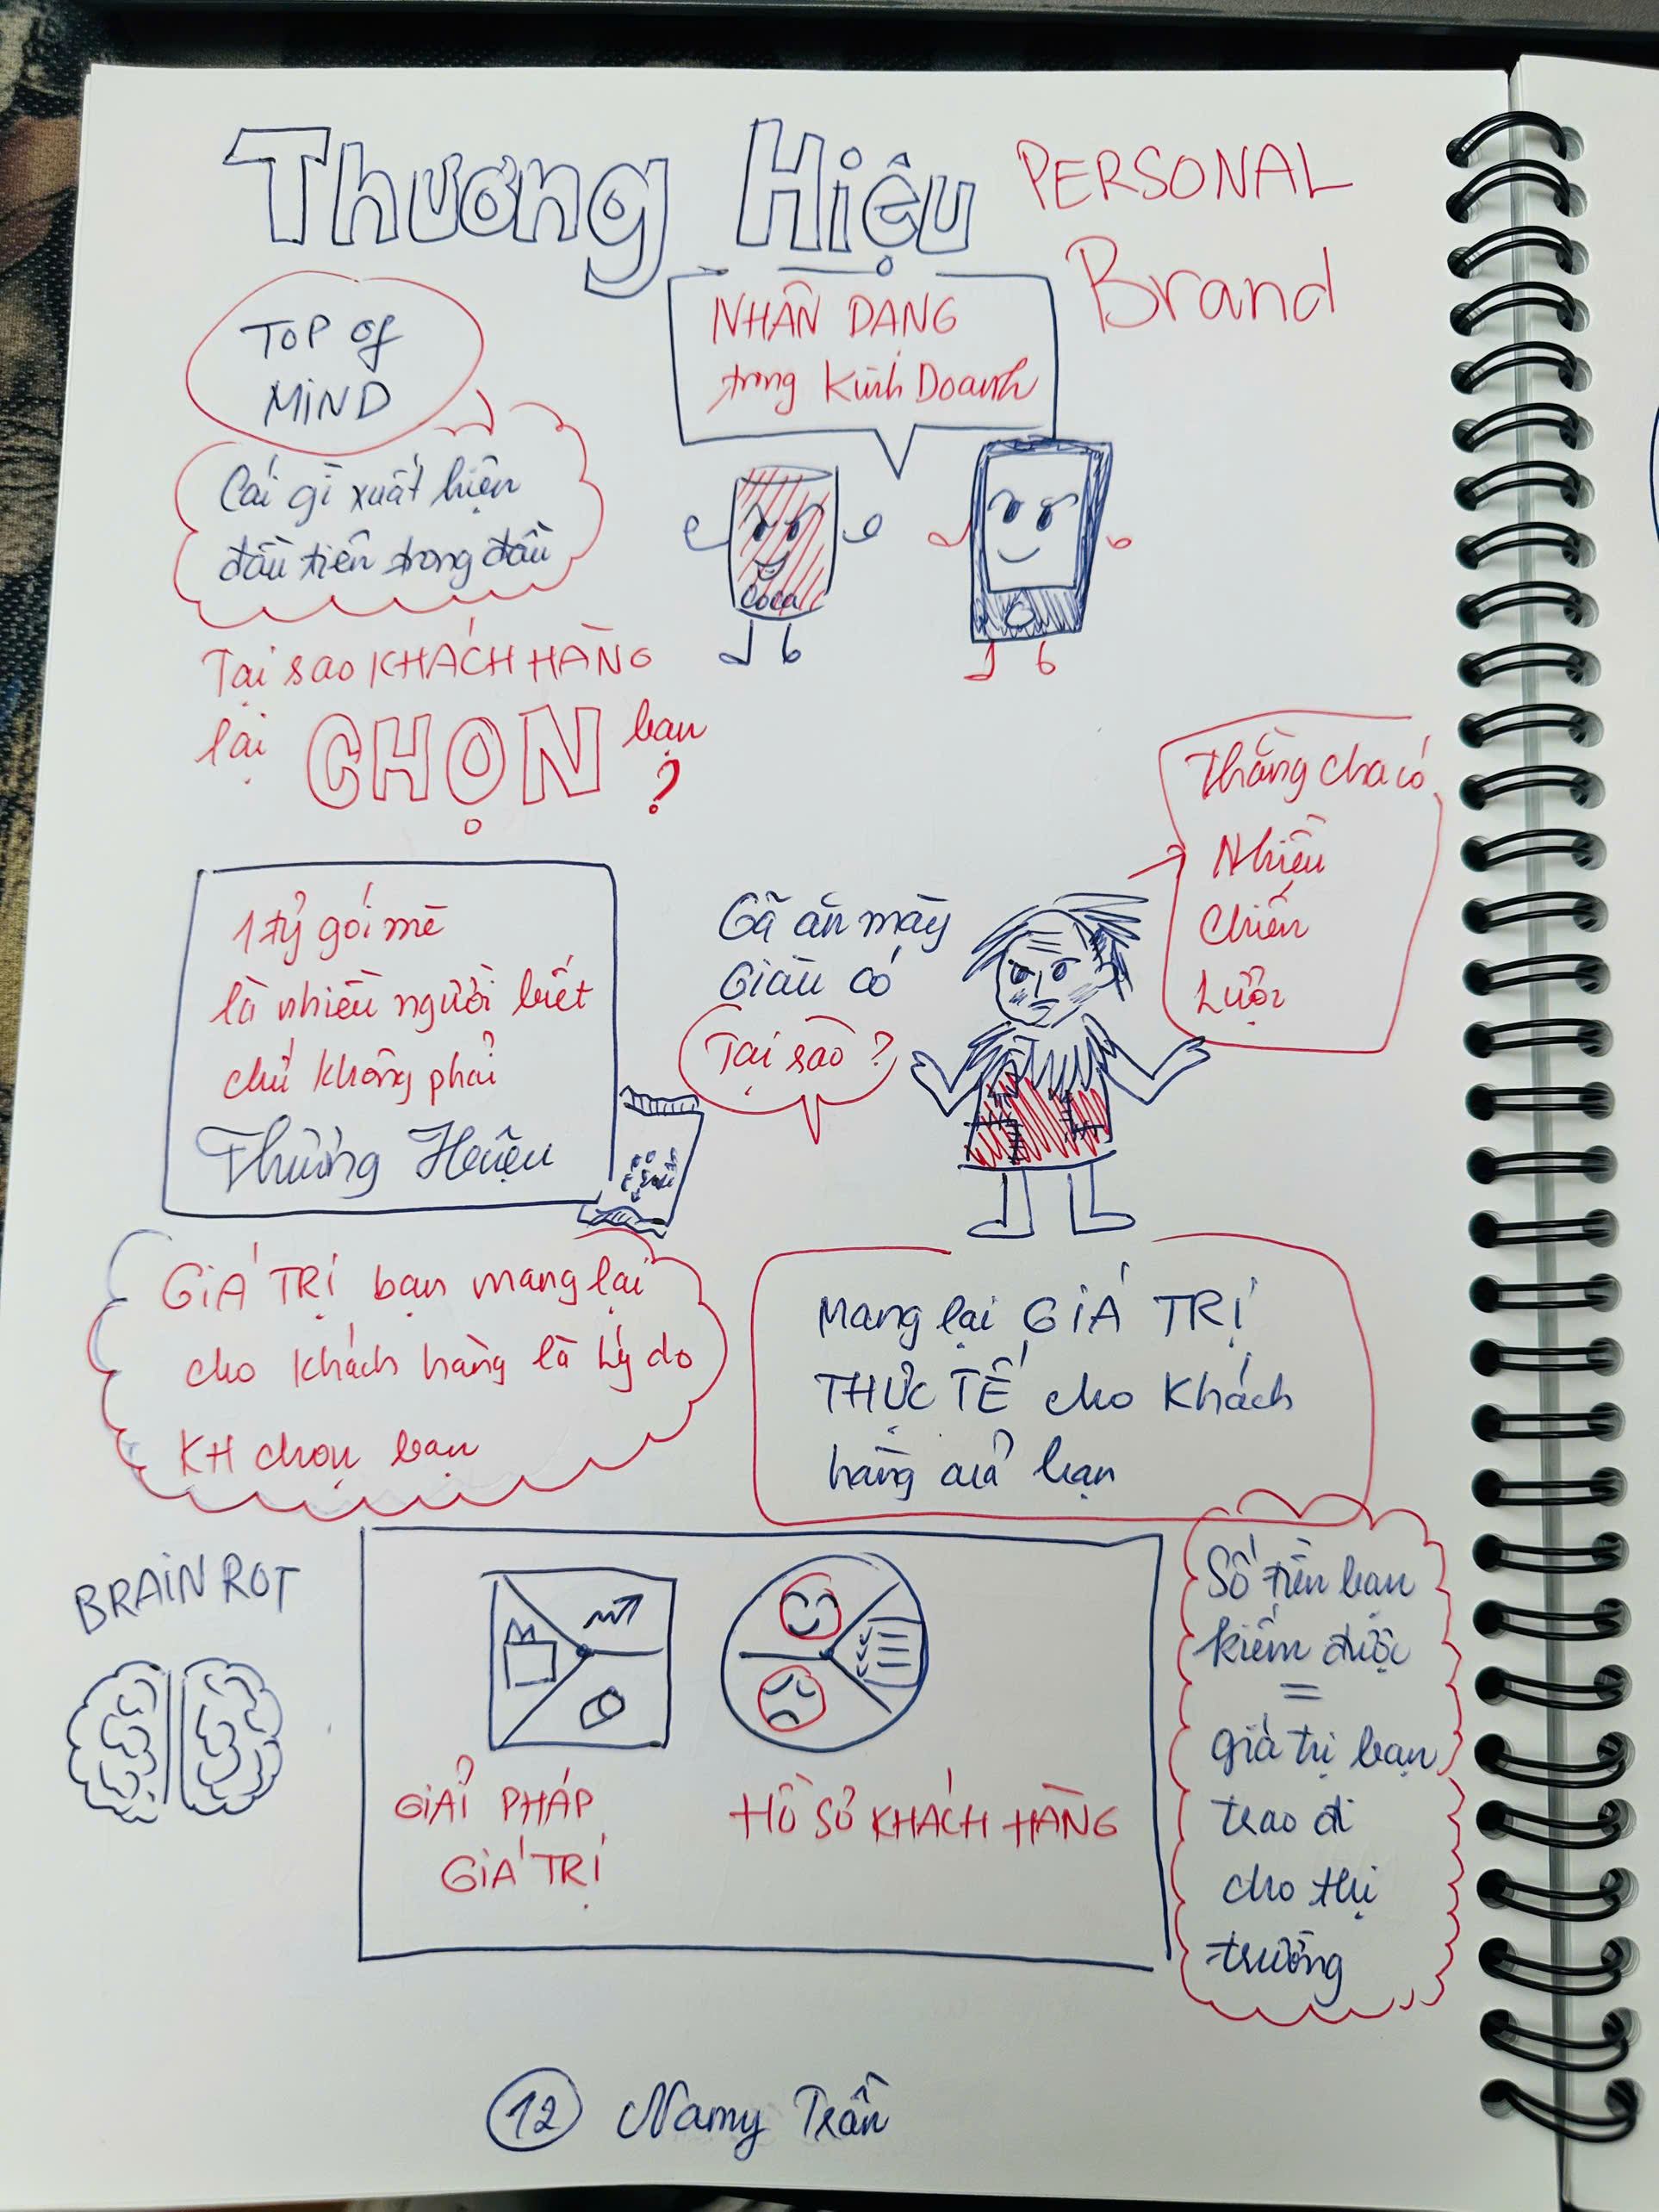 Thương Hiệu
PERSONAL
Brand
TOP Of
MIND
NHÂN DẠNG
trong Kinh Doanh
Cái gì xuất hiện
đầu tiên trong đầu
Coca
Tại sao KHÁCH HÀNG
lại CHỌN bạn
?
Thằng cha có
Nhiều
Chiến
Lược
1 tỷ gói mè
là nhiều người biết
chứ không phải
Thương Hiệu
Gã ăn mày
Giàu có
Tại sao?
GIÁ TRỊ bạn mang lại
cho khách hàng là lý do
KH chọn bạn
Mang lại GIÁ TRỊ
THỰC TẾ cho Khách
hàng của bạn
BRAIN ROT
GIẢI PHÁP
GIÁ TRỊ
HỒ SƠ KHÁCH HÀNG
Số tiền bạn
kiếm được
=
giá trị bạn
trao đi
cho thị
trường
12 Namy Trần